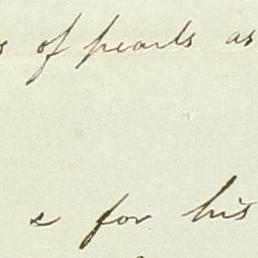 of pearls as
e for his